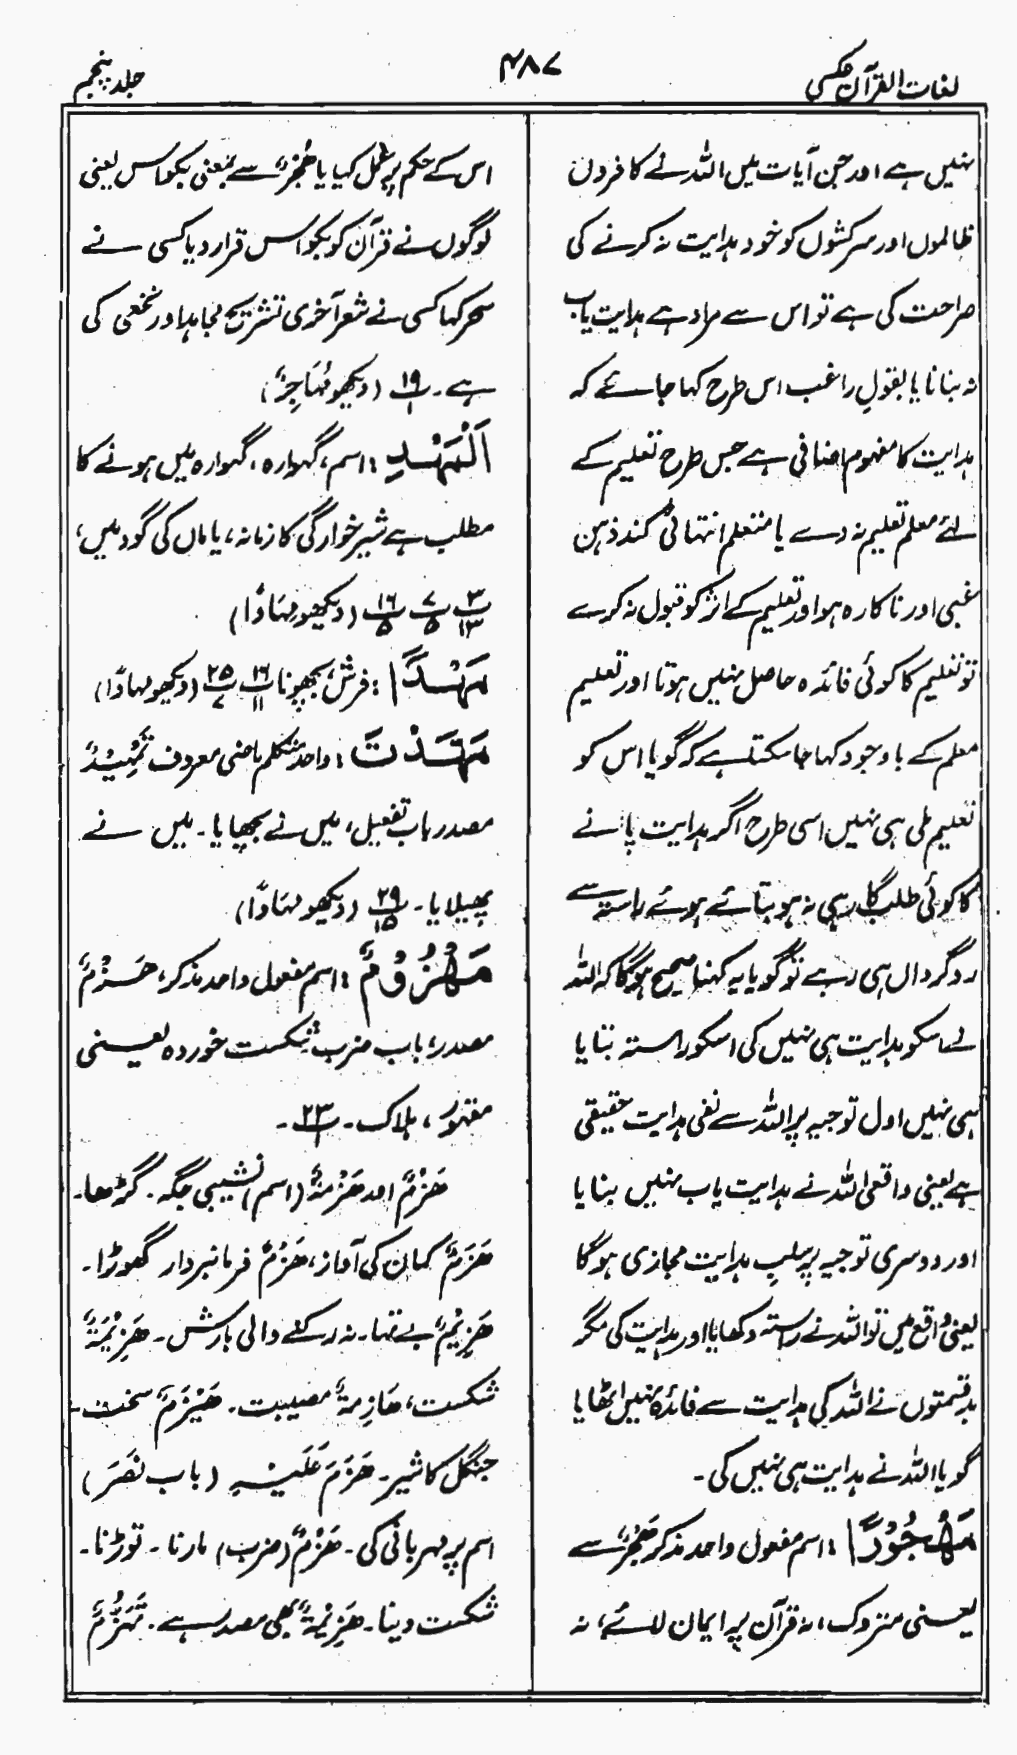 لغات القرآن عکسی
۴۸۷
جلد پنجم
نہیں ہے اور جن آیات میں اللہ نے کافروں
ظالموں اور سرکشوں کو خود ہدایت نہ کرنے کی
صراحت کی ہے تو اس سے مراد ہے ہدایت یاب
نہ بنانا یا بقولِ راغب اس طرح کہا جائے کہ
ہدایت کا مفہوم اضافی ہے جس طرح تعلیم کے
لئے معلم تعلیم نہ دے یا متعلم انتہائی کند ذہن
غبی اور ناکارہ ہو اور تعلیم کے اثر کو قبول نہ کرے
تو تعلیم کا کوئی فائدہ حاصل نہیں ہوتا اور تعلیم
معلم کے باوجود کہا جا سکتا ہے کہ گویا اس کو
تعلیم ملی ہی نہیں اسی طرح اگر ہدایت پانے
کا کوئی طلبگار ہی نہ ہو بتائے ہوئے راستہ سے
ردگرداں ہی رہے تو گویا یہ کہنا صحیح ہوگا کہ اللہ
نے اسکو ہدایت ہی نہیں کی اسکو راستہ بتایا
ہی نہیں اول توجیہ پر اللہ سے نفی ہدایت حقیقی
ہے یعنی واقعی اللہ نے ہدایت یاب نہیں بنایا
اور دوسری توجیہ پر سلبِ ہدایت مجازی ہوگا
یعنی واقع میں تو اللہ نے راستہ دکھایا اور ہدایت کی مگر
بدقسمتوں نے اللہ کی ہدایت سے فائدہ نہیں اٹھایا
گویا اللہ نے ہدایت ہی نہیں کی۔
مَهْجُوْرًا: اسم مفعول واحد مذکر ھَجْرٌ سے
یعنی متروک، نہ قرآن پر ایمان لائے، نہ
اس کے حکم پر عمل کیا یا ھُجْرٌ سے بمعنی بکواس یعنی
لوگوں نے قرآن کو بکواس قرار دیا کسی نے
سحر کہا کسی نے شعر آخری تشریح مجاہد اور نخعی کی
ہے۔ ۱۹/۱ (دیکھو مُہَاجِرٌ)
اَلْمَهْدِ: اسم، گہوارہ، گہوارہ میں ہونے کا
مطلب ہے شیر خوارگی کا زمانہ، یا ماں کی گود میں،
۳/۱۳ ۷/۵ ۱۶/۵ (دیکھو مِہَادًا)
مَهْدًا: فرش، بچھونا ۱۶/۱۱ ۲۵/۷ (دیکھو مِہَادًا)
مَهَّدْتُ: واحد متکلم ماضی معروف تَمْہِیْدٌ
مصدر باب تفعیل، میں نے بچھایا۔ میں نے
پھیلایا۔ ۲۹/۱۵ (دیکھو مِہَادًا)
مَهْزُوْمٌ: اسم مفعول واحد مذکر، ھَزْمٌ
مصدر، باب ضرب شکست خوردہ یعنی
مقہور، ہلاک۔ ۲۳/۱۰۔
ھَزْمٌ اور ھَزْمَةٌ (اسم) نشیبی جگہ۔ گڑھا۔
ھَزَمٌ کمان کی آواز، ھَزِمٌ فرمانبردار گھوڑا۔
ھَزِیْمٌ بے تھا۔ نہ رکنے والی بارش۔ ھَزِیْمَةٌ
شکست، ھَازِمَةٌ مصیبت۔ ھَیْزَمٌ سخت۔
جنگل کا شیر۔ ھَزَمَ عَلَیْہِ (باب نَصَرَ)
اسم پر مہربانی کی۔ ھَزْمٌ (ضرب) مارنا۔ توڑنا۔
شکست دینا۔ ھَزِیْمَةٌ بھی مصدر ہے۔ تَہَزُّمٌ